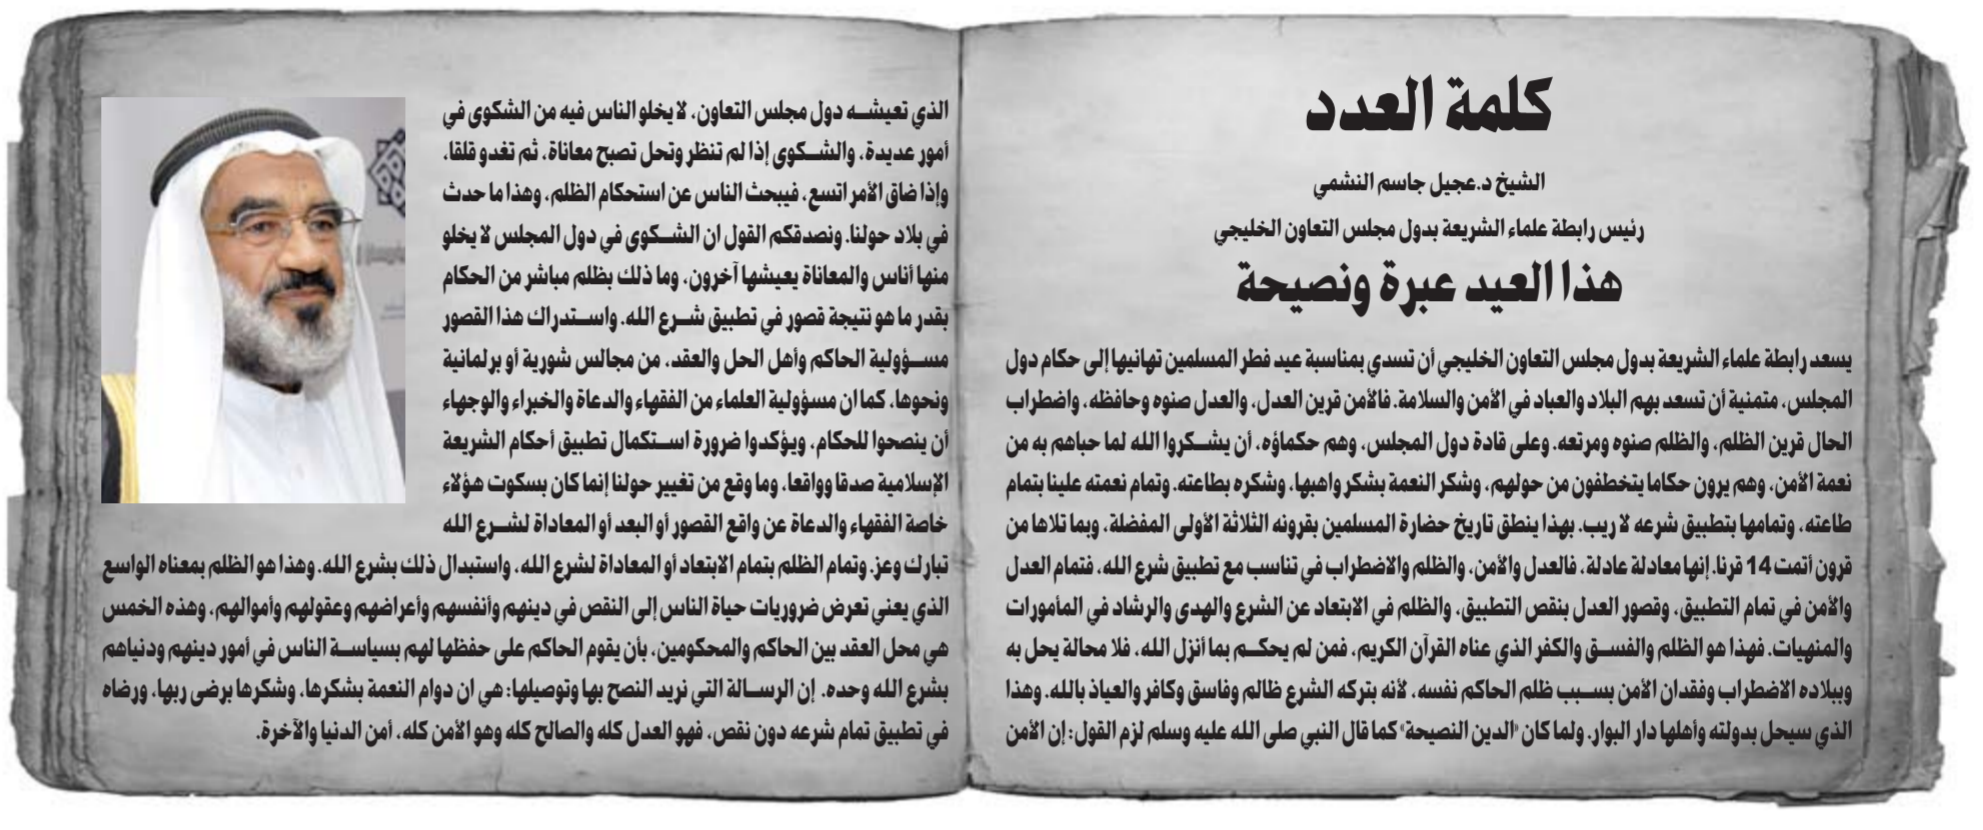 كلمة العدد
الشيخ د.عجيل جاسم النشمي
رئيس رابطة علماء الشريعة بدول مجلس التعاون الخليجي
هذا العيد عبرة ونصيحة
يسعد رابطة علماء الشريعة بدول مجلس التعاون الخليجي أن تسدي بمناسبة عيد فطر المسلمين تهانيها إلى حكام دول
المجلس، متمنية أن تسعد بهم البلاد والعباد في الأمن والسلامة. فالأمن قرين العدل، والعدل صنوه وحافظه، واضطراب
الحال قرين الظلم، والظلم صنوه ومرتعه. وعلى قادة دول المجلس، وهم حكماؤه، أن يشكروا الله لما حباهم به من
نعمة الأمن، وهم يرون حكاما يتخطفون من حولهم، وشكر النعمة بشكر واهبها، وشكره بطاعته. وتمام نعمته علينا بتمام
طاعته، وتمامها بتطبيق شرعه لا ريب. بهذا ينطق تاريخ حضارة المسلمين بقرونه الثلاثة الأولى المفضلة، وبما تلاها من
قرون أتمت 14 قرنا. إنها معادلة عادلة، فالعدل والأمن، والظلم والاضطراب في تناسب مع تطبيق شرع الله، فتمام العدل
والأمن في تمام التطبيق، وقصور العدل بنقص التطبيق، والظلم في الابتعاد عن الشرع والهدى والرشاد في المأمورات
والمنهيات. فهذا هو الظلم والفسق والكفر الذي عناه القرآن الكريم، فمن لم يحكم بما أنزل الله، فلا محالة يحل به
وببلاده الاضطراب وفقدان الأمن بسبب ظلم الحاكم نفسه، لأنه بتركه الشرع ظالم وفاسق وكافر والعياذ بالله. وهذا
الذي سيحل بدولته وأهلها دار البوار. ولما كان "الدين النصيحة" كما قال النبي صلى الله عليه وسلم لزم القول: إن الأمن
الذي تعيشه دول مجلس التعاون، لا يخلو الناس فيه من الشكوى في
أمور عديدة، والشكوى إذا لم تنظر وتحل تصبح معاناة، ثم تغدو قلقا،
وإذا ضاق الأمر اتسع، فيبحث الناس عن استحكام الظلم، وهذا ما حدث
في بلاد حولنا. ونصدقكم القول ان الشكوى في دول المجلس لا يخلو
منها أناس والمعاناة يعيشها آخرون، وما ذلك بظلم مباشر من الحكام
بقدر ما هو نتيجة قصور في تطبيق شرع الله. واستدراك هذا القصور
مسؤولية الحاكم وأهل الحل والعقد، من مجالس شورية أو برلمانية
ونحوها، كما ان مسؤولية العلماء من الفقهاء والدعاة والخبراء والوجهاء
أن ينصحوا للحكام، ويؤكدوا ضرورة استكمال تطبيق أحكام الشريعة
الإسلامية صدقا وواقعا، وما وقع من تغيير حولنا إنما كان بسكوت هؤلاء
خاصة الفقهاء والدعاة عن واقع القصور أو البعد أو المعاداة لشرع الله
تبارك وعز. وتمام الظلم بتمام الابتعاد أو المعاداة لشرع الله، واستبدال ذلك بشرع الله. وهذا هو الظلم بمعناه الواسع
الذي يعني تعرض ضروريات حياة الناس إلى النقص في دينهم وأنفسهم وأعراضهم وعقولهم وأموالهم، وهذه الخمس
هي محل العقد بين الحاكم والمحكومين، بأن يقوم الحاكم على حفظها لهم بسياسة الناس في أمور دينهم ودنياهم
بشرع الله وحده. إن الرسالة التي نريد النصح بها وتوصيلها: هي ان دوام النعمة بشكرها، وشكرها برضى ربها، ورضاه
في تطبيق تمام شرعه دون نقص، فهو العدل كله والصالح كله وهو الأمن كله، أمن الدنيا والآخرة.